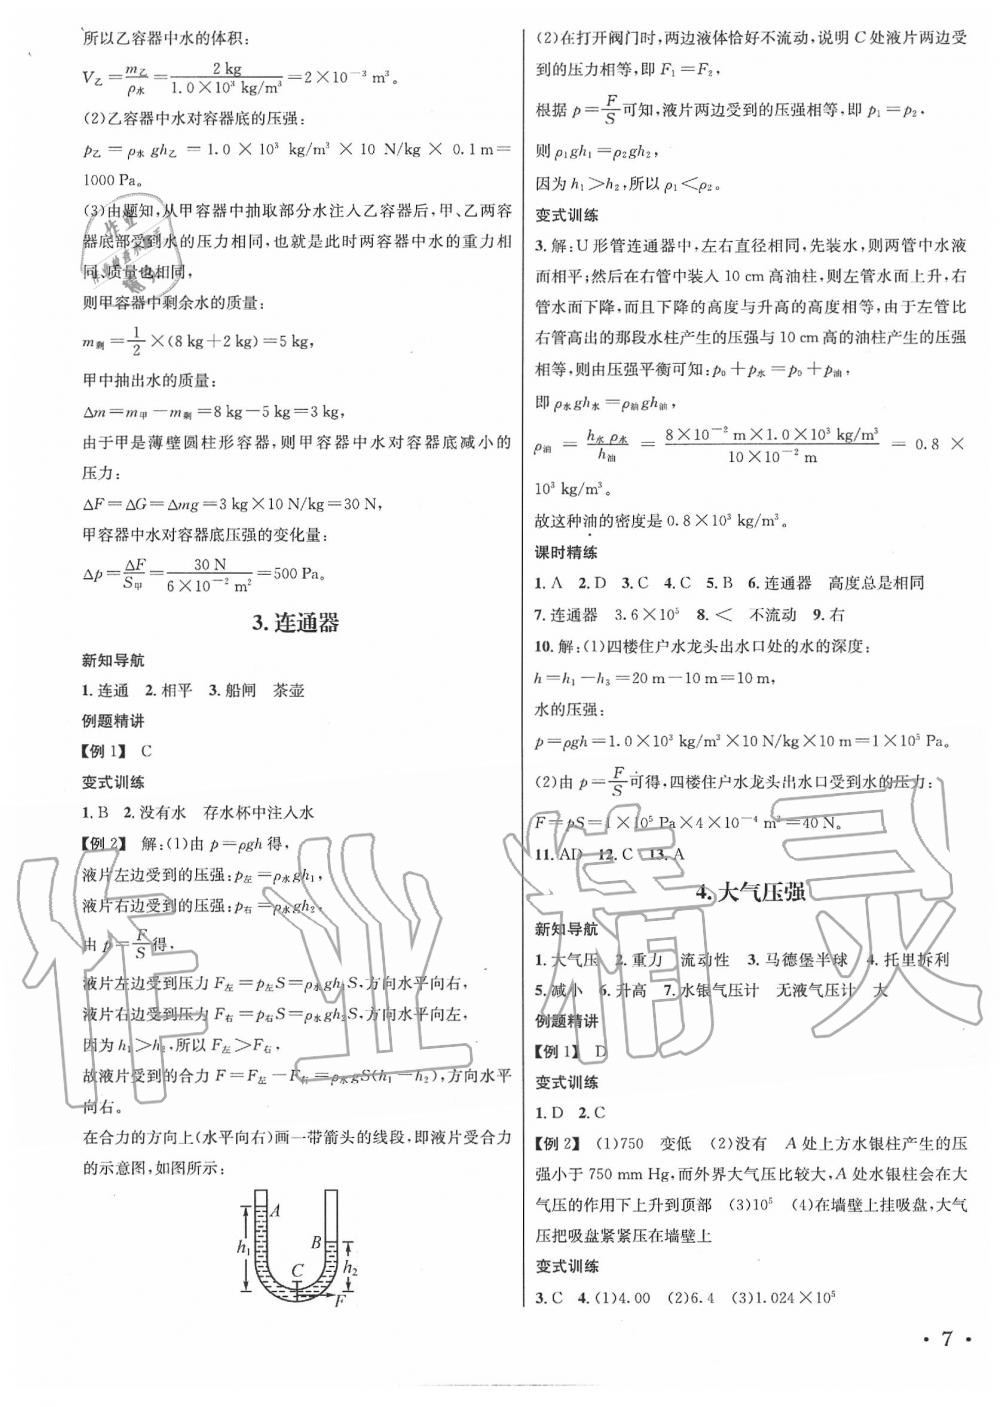 所以乙容器中水的体积:
V乙=m乙/ρ水=2 kg/1.0×10³ kg/m³=2×10⁻³ m³。
(2)乙容器中水对容器底的压强:
p乙=ρ水gh乙=1.0×10³ kg/m³×10 N/kg×0.1 m=
1000 Pa。
(3)由题知,从甲容器中抽取部分水注入乙容器后,甲、乙两容
器底部受到水的压力相同,也就是此时两容器中水的重力相
同、质量也相同,
则甲容器中剩余水的质量:
m剩=1/2×(8 kg+2 kg)=5 kg,
甲中抽出水的质量:
Δm=m甲-m剩=8 kg-5 kg=3 kg,
由于甲是薄壁圆柱形容器,则甲容器中水对容器底减小的
压力:
ΔF=ΔG=Δmg=3 kg×10 N/kg=30 N,
甲容器中水对容器底压强的变化量:
Δp=ΔF/S甲=30 N/6×10⁻² m²=500 Pa。
3. 连通器
新知导航
1. 连通 2. 相平 3. 船闸 茶壶
例题精讲
【例1】 C
变式训练
1. B 2. 没有水 存水杯中注入水
【例2】 解:(1)由 p=ρgh 得,
液片左边受到的压强:p左=ρ水gh₁,
液片右边受到的压强:p右=ρ水gh₂,
由 p=F/S得,
液片左边受到压力 F左=p左S=ρ水gh₁S,方向水平向右,
液片右边受到压力 F右=p右S=ρ水gh₂S,方向水平向左,
因为 h₁>h₂,所以 F左>F右,
故液片受到的合力 F=F左-F右=ρ水gS(h₁-h₂),方向水平
向右。
在合力的方向上(水平向右)画一带箭头的线段,即液片受合力
的示意图,如图所示:
A
B
h₁
C
h₂
F
(2)在打开阀门时,两边液体恰好不流动,说明 C 处液片两边受
到的压力相等,即 F₁=F₂,
根据 p=F/S可知,液片两边受到的压强相等,即 p₁=p₂,
则 ρ₁gh₁=ρ₂gh₂,
因为 h₁>h₂,所以 ρ₁<ρ₂。
变式训练
3. 解:U 形管连通器中,左右直径相同,先装水,则两管中水液
面相平;然后在右管中装入 10 cm 高油柱,则左管水面上升,右
管水面下降,而且下降的高度与升高的高度相等,由于左管比
右管高出的那段水柱产生的压强与 10 cm 高的油柱产生的压强
相等,则由压强平衡可知:p₀+p水=p₀+p油,
即 ρ水gh水=ρ油gh油,
ρ油=h水ρ水/h油=8×10⁻² m×1.0×10³ kg/m³/10×10⁻² m=0.8×
10³ kg/m³。
故这种油的密度是 0.8×10³ kg/m³。
课时精练
1. A 2. D 3. C 4. C 5. B 6. 连通器 高度总是相同
7. 连通器 3.6×10⁵ 8. < 不流动 9. 右
10. 解:(1)四楼住户水龙头出水口处的水的深度:
h=h₁-h₃=20 m-10 m=10 m,
水的压强:
p=ρgh=1.0×10³ kg/m³×10 N/kg×10 m=1×10⁵ Pa。
(2)由 p=F/S可得,四楼住户水龙头出水口受到水的压力:
F=pS=1×10⁵ Pa×4×10⁻⁴ m²=40 N。
11. AD 12. C 13. A
4. 大气压强
新知导航
1. 大气压 2. 重力 流动性 3. 马德堡半球 4. 托里拆利
5. 减小 6. 升高 7. 水银气压计 无液气压计 大
例题精讲
【例1】 D
变式训练
1. D 2. C
【例2】 (1)750 变低 (2)没有 A 处上方水银柱产生的压
强小于 750 mm Hg,而外界大气压比较大,A 处水银柱会在大
气压的作用下上升到顶部 (3)10⁵ (4)在墙壁上挂吸盘,大气
压把吸盘紧紧压在墙壁上
变式训练
3. C 4. (1)4.00 (2)6.4 (3)1.024×10⁵
· 7 ·
作业精灵